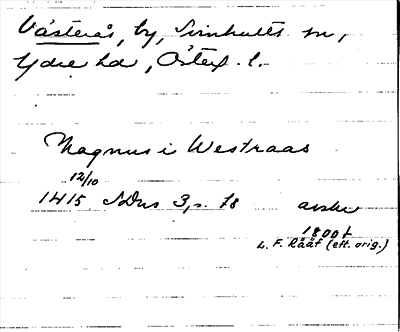 Västerås, by, Svinhults sn,
Ydre hd, Österg. l.
Magnus i Westraas
12/10
1415 SDns 3, s. 18 avskr
1800t
L. F. Rääf (eft. orig.)